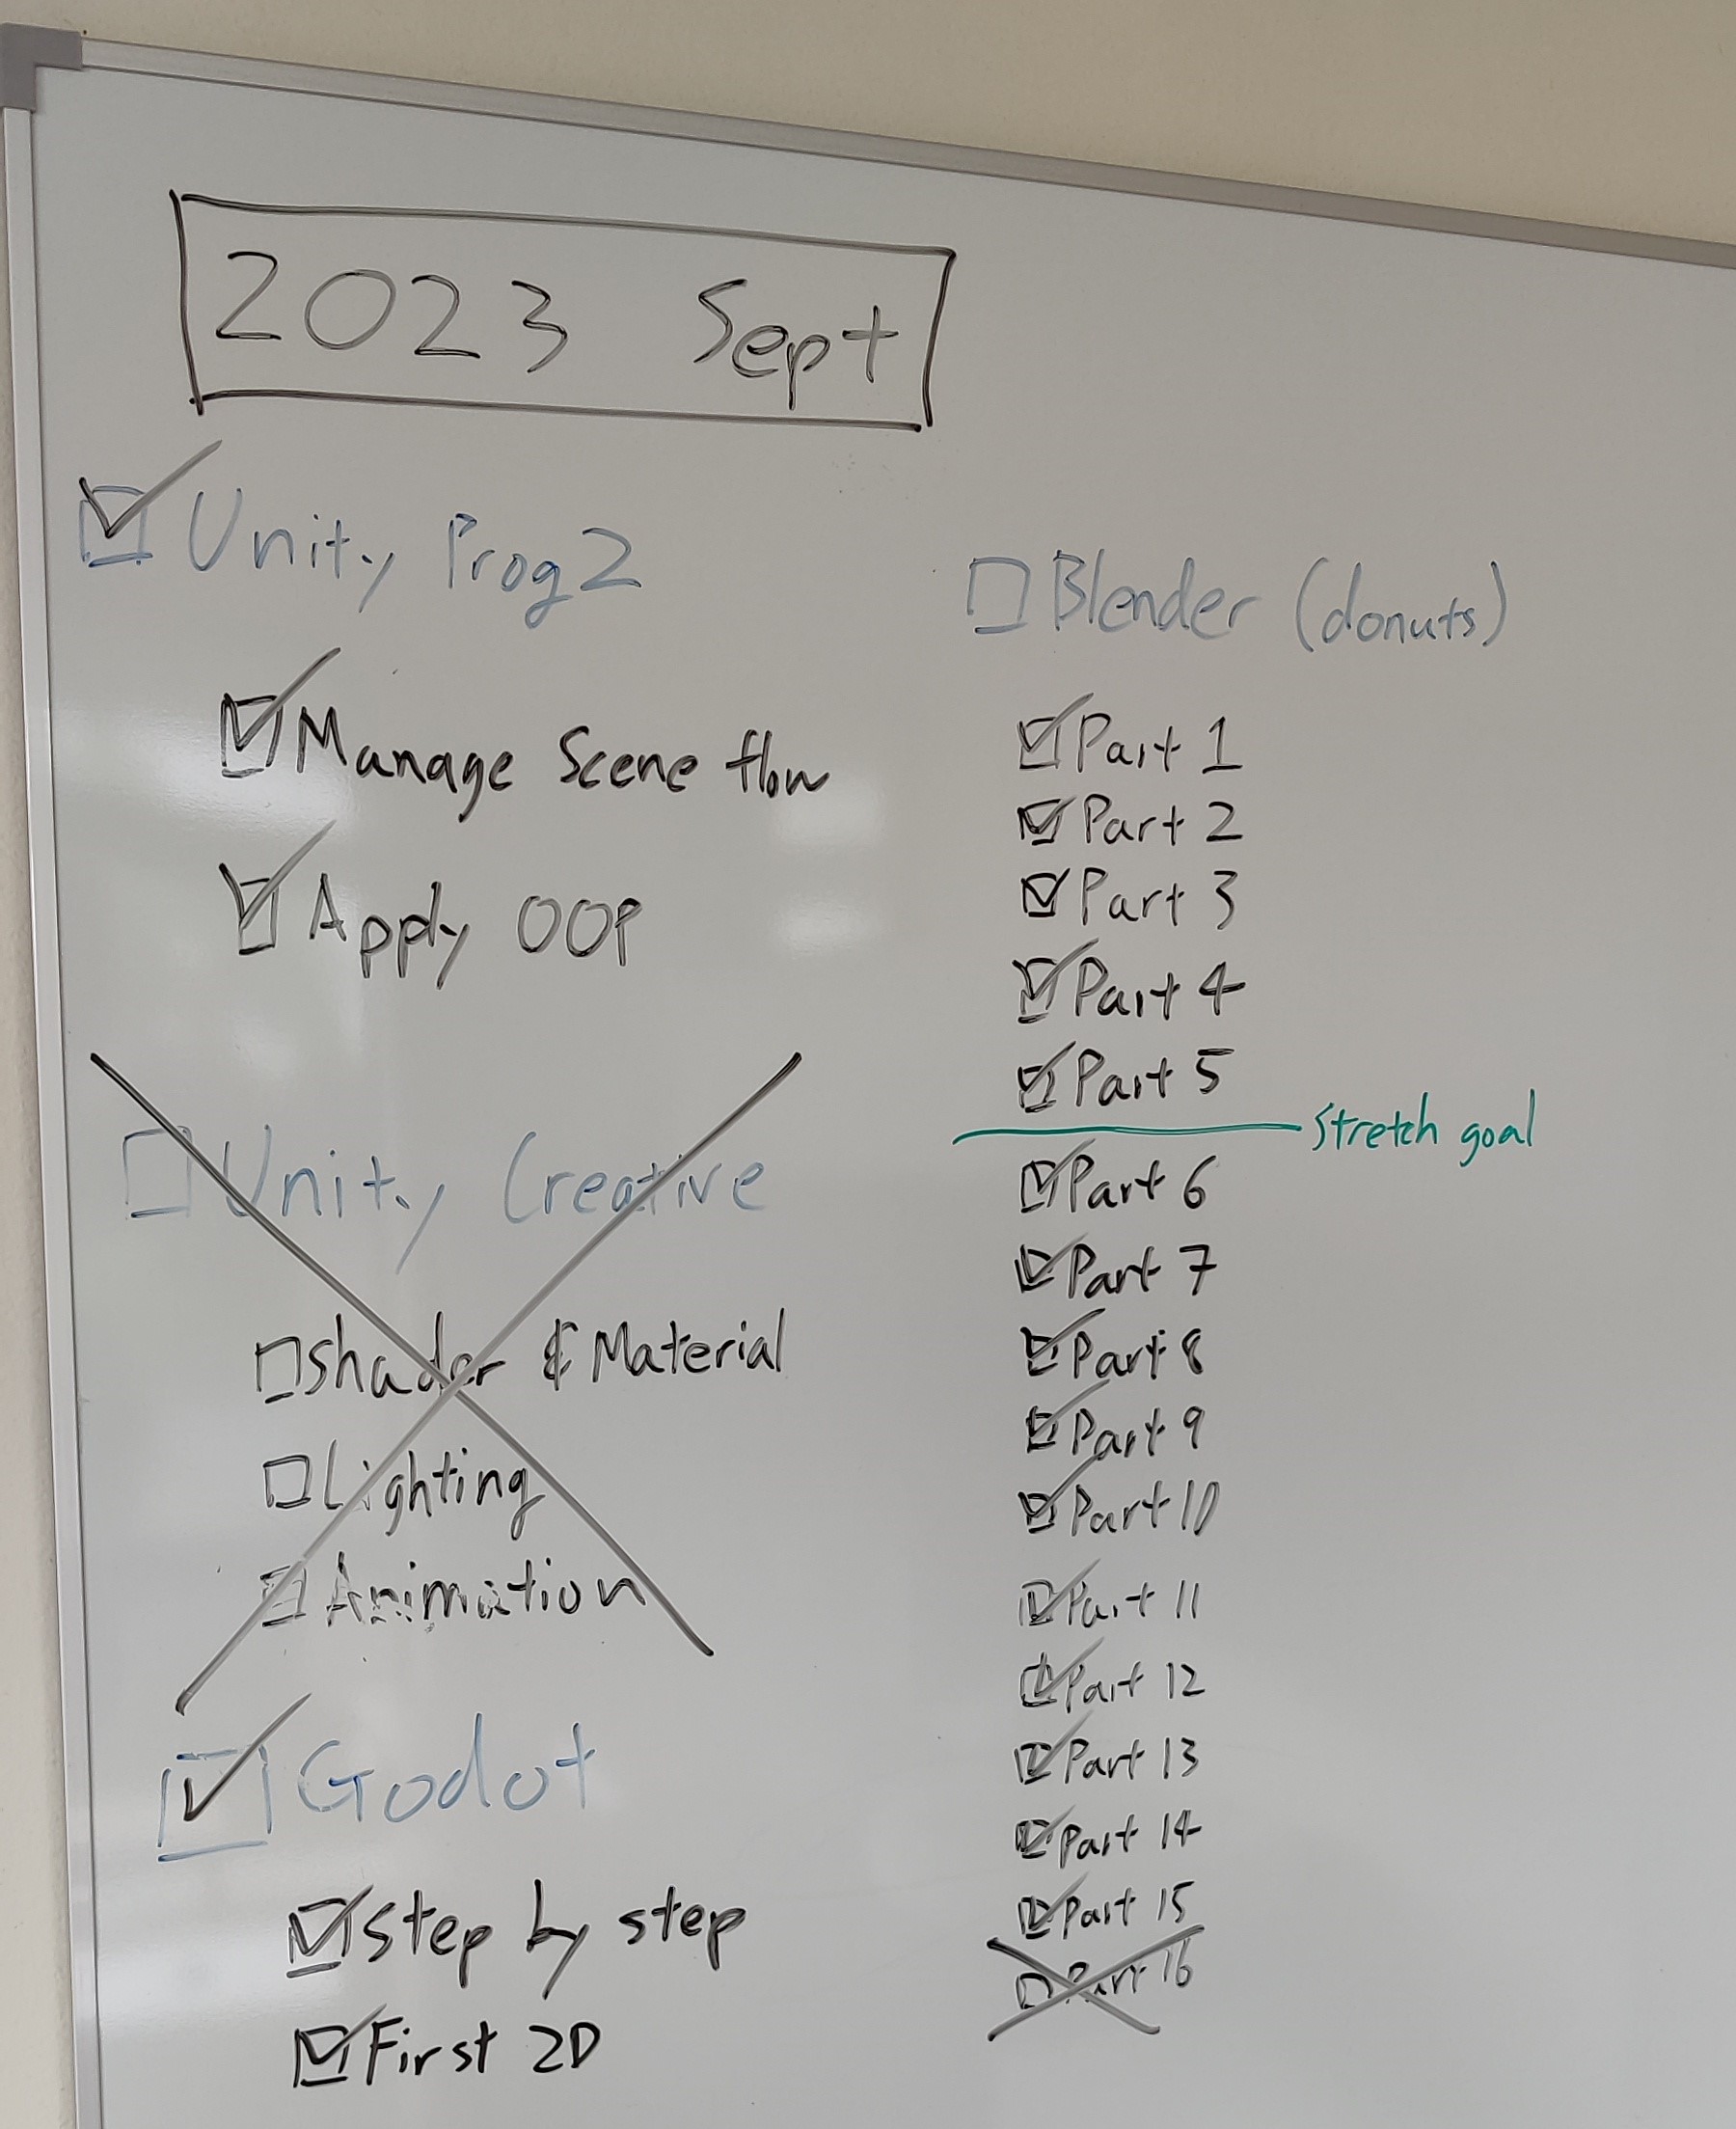 2023 Sept
Unity Prog 2
Manage Scene flow
Apply OOP
Unity Creative
Shader & Material
Lighting
Animation
Godot
Step by step
First 2D
Blender (donuts)
Part 1
Part 2
Part 3
Part 4
Part 5
Stretch goal
Part 6
Part 7
Part 8
Part 9
Part 10
Part 11
Part 12
Part 13
Part 14
Part 15
Part 16